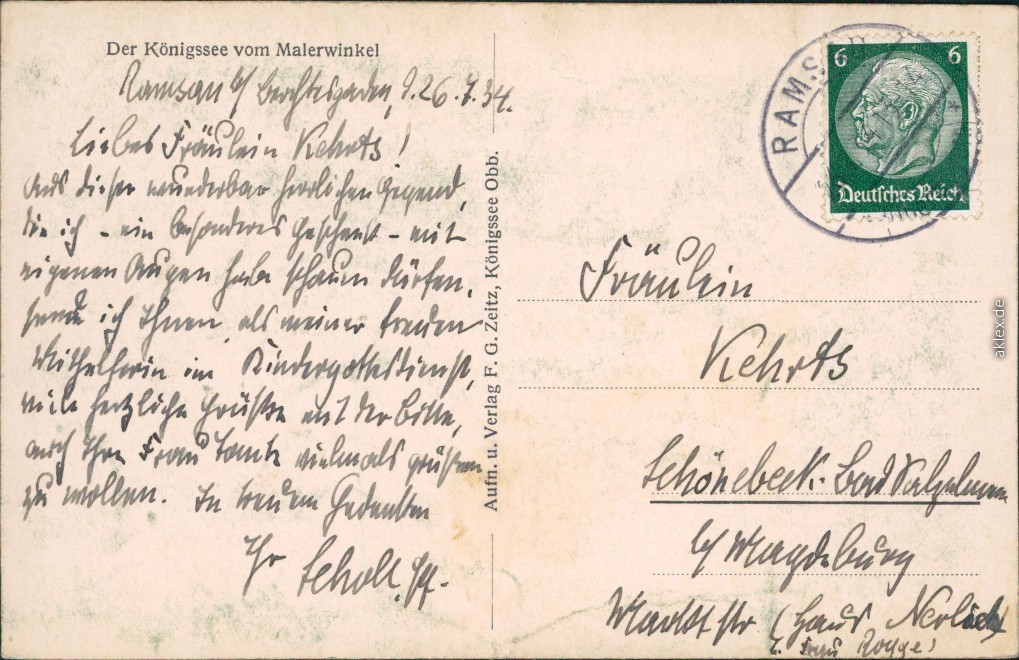 Der Königssee vom Malerwinkel
Ramsau b/ Berchtesgaden, d. 26.7.34.
Liebes Fräulein Kehrts!
Aus dieser wunderbar herrlichen Gegend,
die ich - ein besonderes Geschenk - mit
eigenen Augen habe schauen dürfen,
sende ich Ihnen, als meiner treuen
Mithelferin im Kindergottesdienst,
viele herzliche Grüße mit der Bitte,
auch Ihre Frau Tante vielmals grüßen
zu wollen. In treuem Gedenken
Ihr Scholl,
Aufn. u. Verlag F. G. Zeitz, Königssee Obb.
RAMS
6 6
Deutsches Reich
Fräulein
Kehrts
Schönebeck-Bad Salzelmen
b/ Magdeburg
Marktstr (Haus
Frau Rogge)
aklex.de